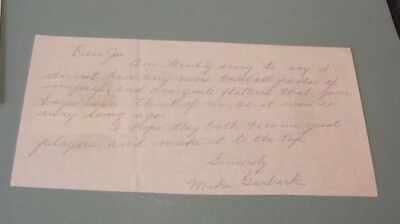 Dear Joe -
Am terribly sorry to say I
do not have any more baseball photos of
myself, and am quite flattered that your
boys even think of me, as it was so
very long ago.
I hope they both become great
players, and make it to the top
Sincerely
Mike Garbark